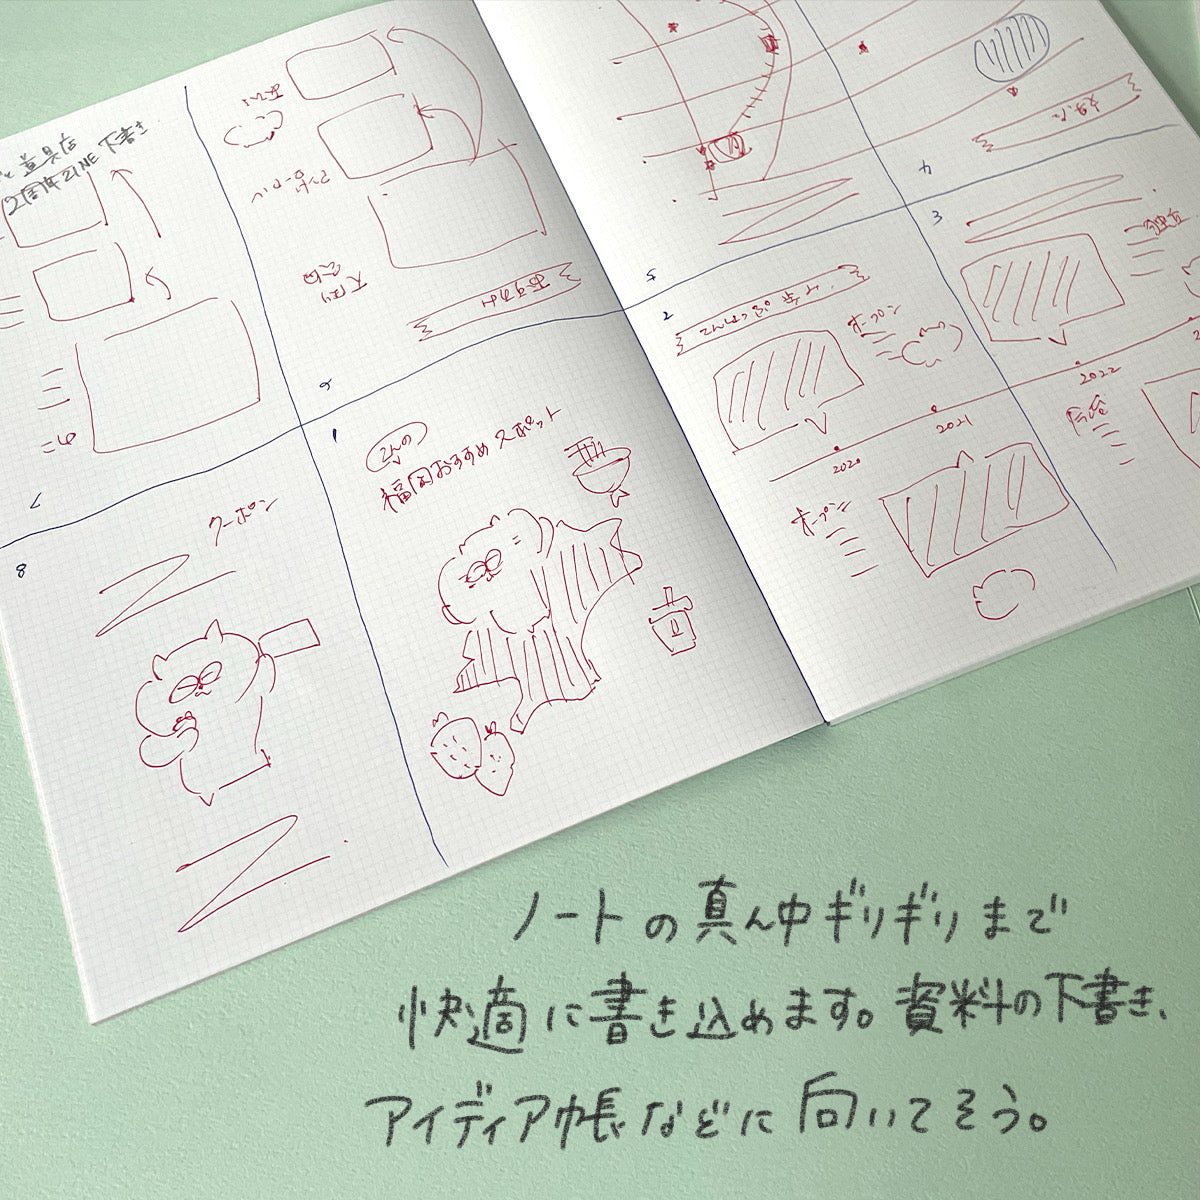 道具店
2周年ZINE 下書き
おすすめ
5
4
3
2
オープン
2020
2021
2022
オープン
1
福岡おすすめスポット
8
クーポン
ノートの真ん中ギリギリまで
快適に書き込めます。資料の下書き、
アイディア帳などに向いてそう。